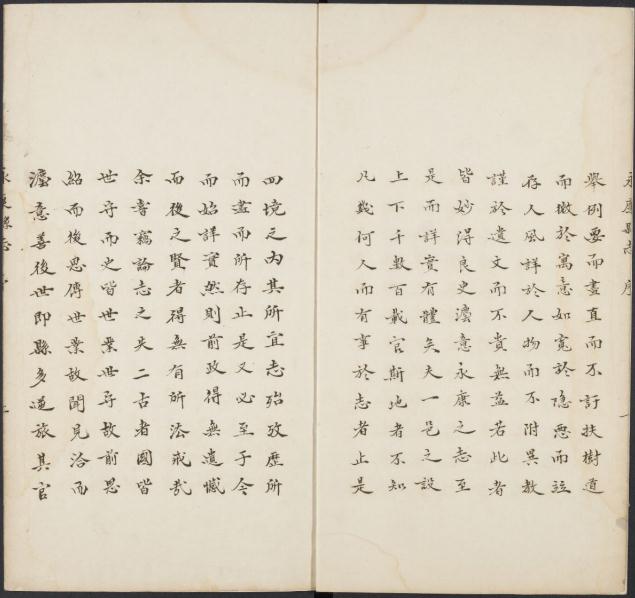 永康縣志 序 一
舉例要而盡直而不訐扶樹道
而徵於寓意如寬於隱惡而竝
存人風詳於人物而不附異教
謹於遺文而不貴無益若此者
皆妙得良史濬意永康之志至
是而詳實有體矣夫一邑之設
上下千數百載官斯地者不知
凡幾何人而有事於志者止是
四境之內其所宜志殆攷歷所
而盡而所存止是又必至于今
而始詳實然則前政得無遺憾
而後之賢者得無有所法戒哉
余嘗竊論志之失二古者國皆
世守而史皆世業世守故前思
紹而後思傳世業故聞見洽而
濬意善後世即縣多逆旅其官